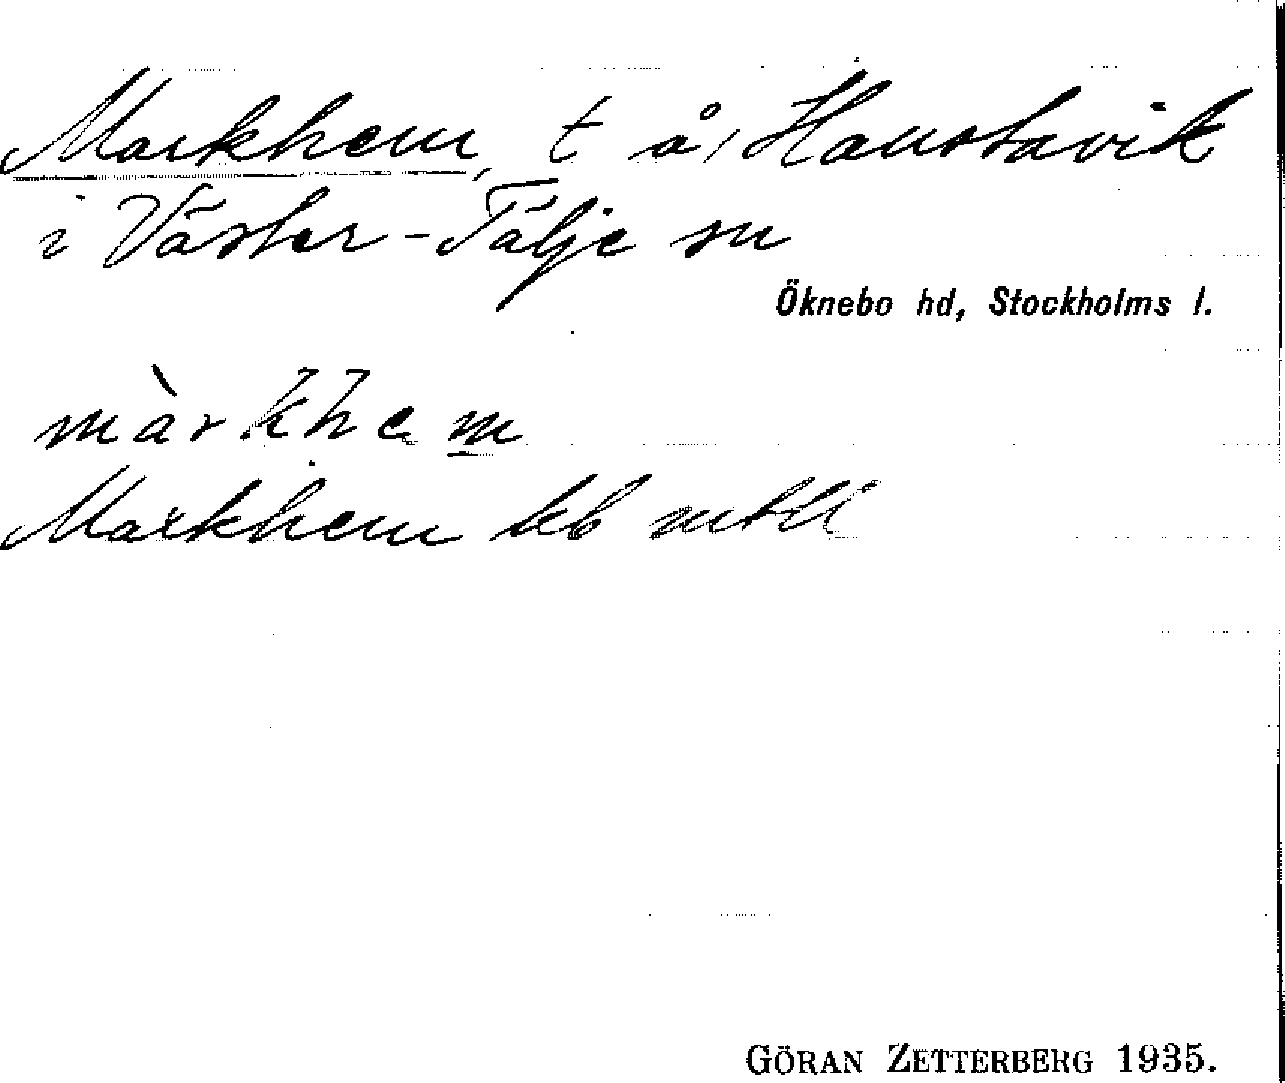 Markhem, t å, Hanstavik
i Väster-Tälje sn
Öknebo hd, Stockholms l.
màrkhem
Markhem kb mtll
GÖRAN ZETTERBERG 1935.